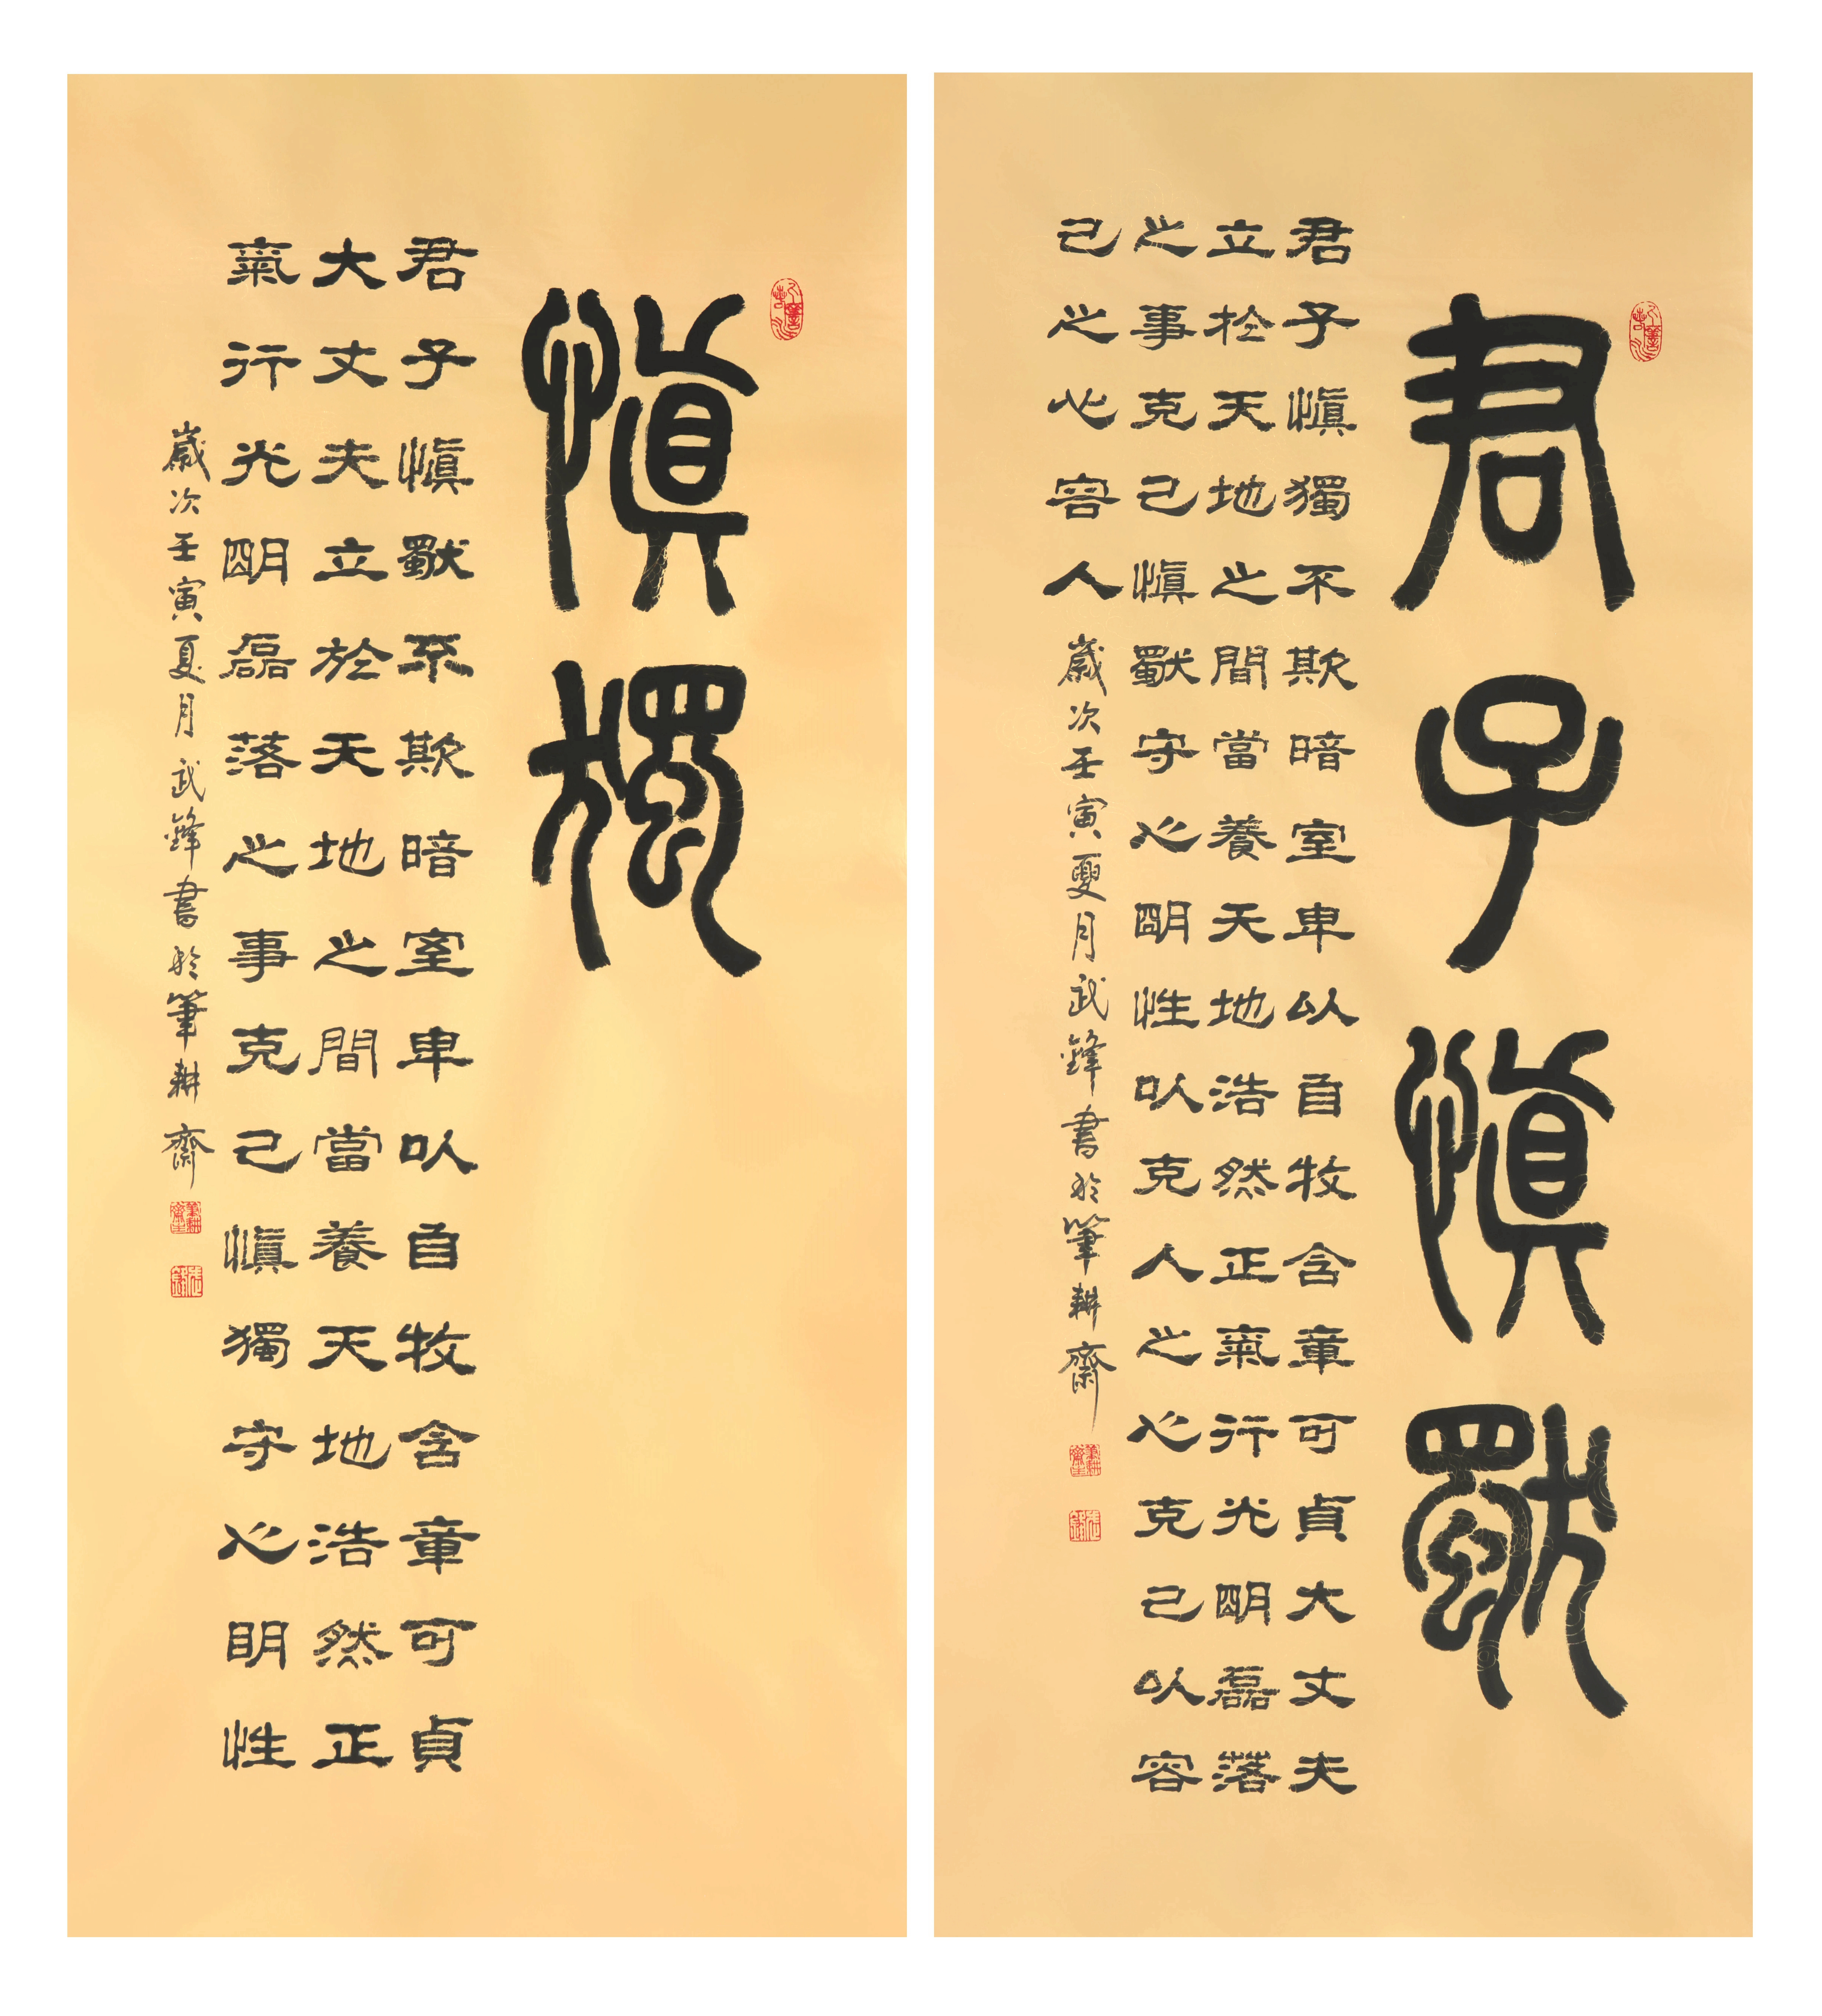 君子慎獨
君子慎獨不欺暗室卑以自牧含章可貞大丈夫
立於天地之間當養天地浩然正氣行光明磊落
之事克己慎獨守心明性以克人之心克己以容
己之心容人
歲次壬寅夏月武鋒書於筆耕齋
慎獨
君子慎獨不欺暗室卑以自牧含章可貞
大丈夫立於天地之間當養天地浩然正
氣行光明磊落之事克己慎獨守心明性
歲次壬寅夏月武鋒書於筆耕齋